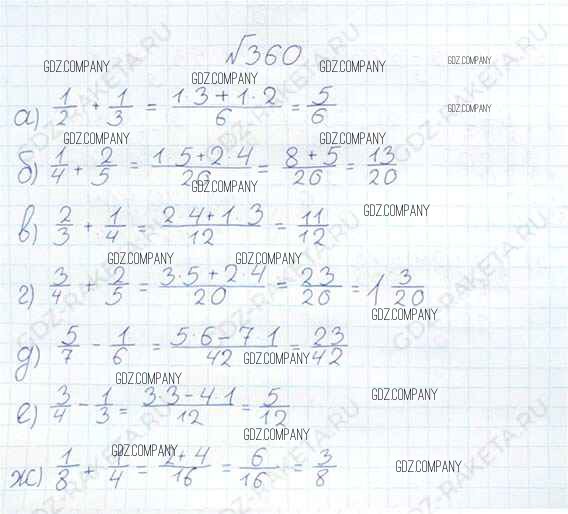 №360
GDZ.COMPANY GDZ.COMPANY GDZ.COMPANY
GDZ.COMPANY
а) 1/2 + 1/3 = (1·3+1·2)/6 = 5/6
GDZ.COMPANY
GDZ.COMPANY GDZ.COMPANY
б) 1/4 + 2/5 = (1·5+2·4)/20 = (8+5)/20 = 13/20
GDZ.COMPANY
GDZ.COMPANY
в) 2/3 + 1/4 = (2·4+1·3)/12 = 11/12
GDZ.COMPANY GDZ.COMPANY
г) 3/4 + 2/5 = (3·5+2·4)/20 = 23/20 = 1 3/20
GDZ.COMPANY
д) 5/7 - 1/6 = (5·6-7·1)/42 = 23/42
GDZ.COMPANY
GDZ.COMPANY
GDZ.COMPANY
е) 3/4 - 1/3 = (3·3-4·1)/12 = 5/12
GDZ.COMPANY
GDZ.COMPANY
ж) 1/8 + 1/4 = (2+4)/16 = 6/16 = 3/8
GDZ.COMPANY
GDZ-RAKETA.RU